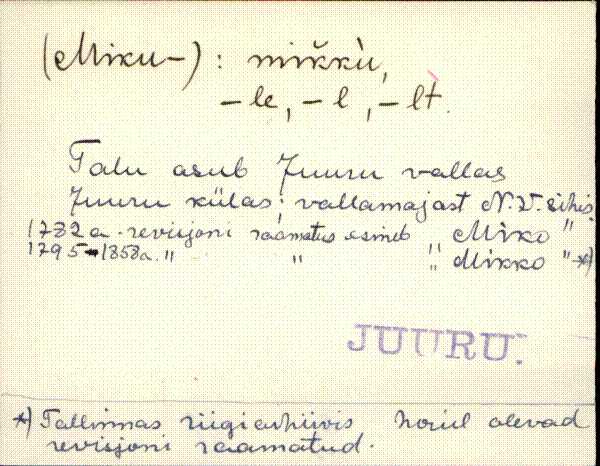 (Miku-): mikkù,
-le, -l, -lt.
Talu asub Juuru vallas
Juuru külas; vallamajast N.W. sihis.
1782 a. revisjoni raamatus esineb „Miko"
1795-1858 a. " " „Mikko" *)
JUURU.
*) Tallinnas riigiarhiivis hoiul olevad
revisjoni raamatud.